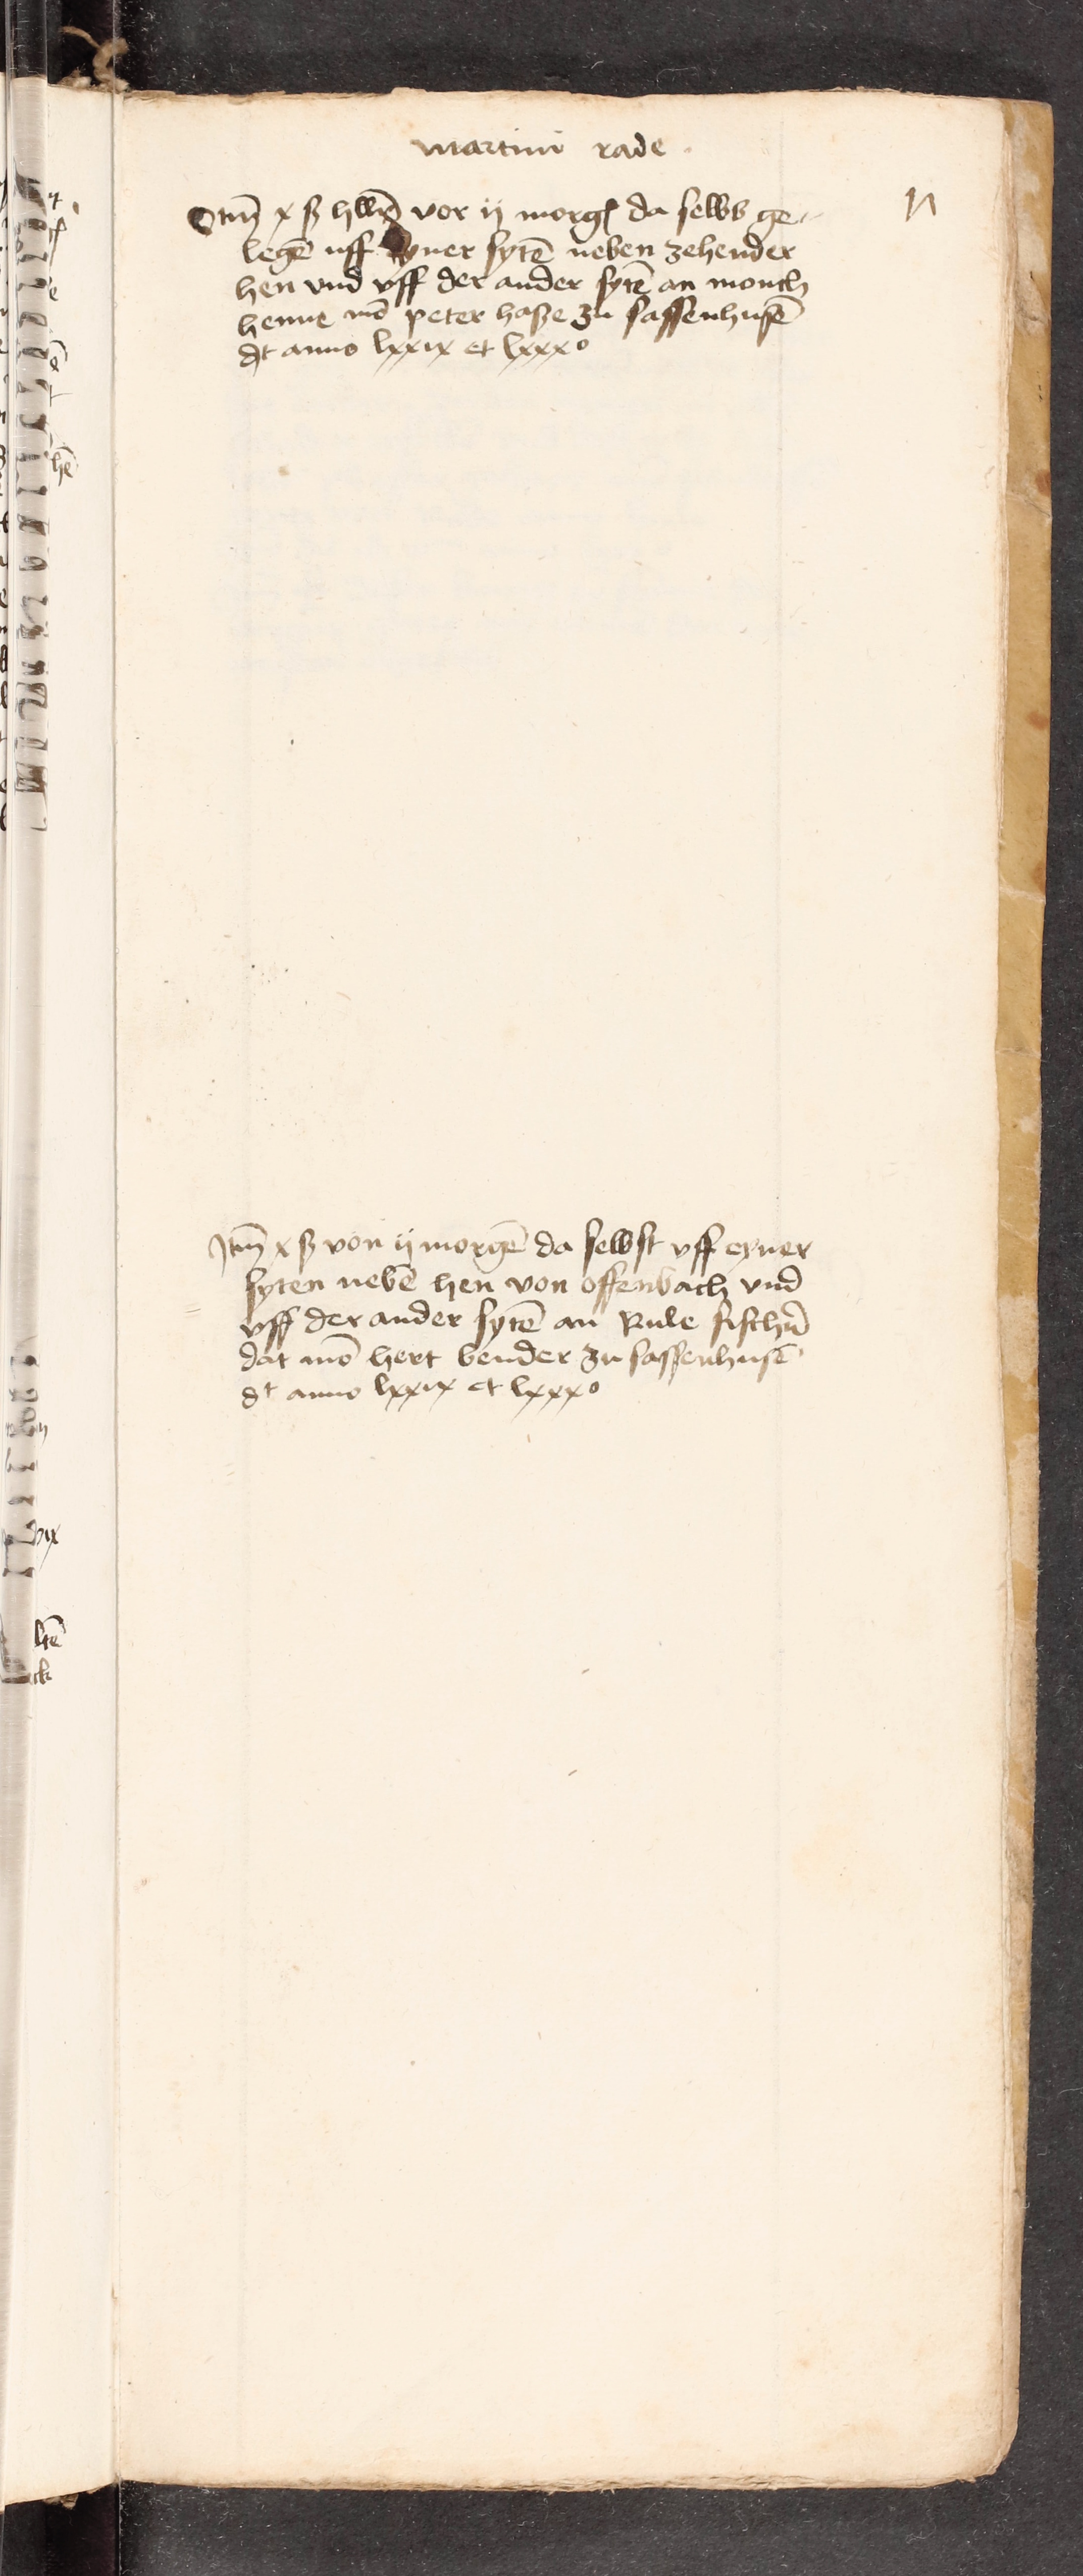 martini rade
11
Itm̄ x ß hllr̄ vor ij morgñ da selbs ge-
legē uff eyner sytē neben zehender
hen vnd vff der ander sytē an monch
henne mō peter haße zu sassenhusē
dt anno lxxix et lxxxo
Itm̄ x ß von ij morgē da selbst vff eyner
syten nebē hen von offenbach vnd
vff der ander sytē an Rule fischer
dat mō hert bender zu sassenhusē
dt anno lxxix et lxxxo